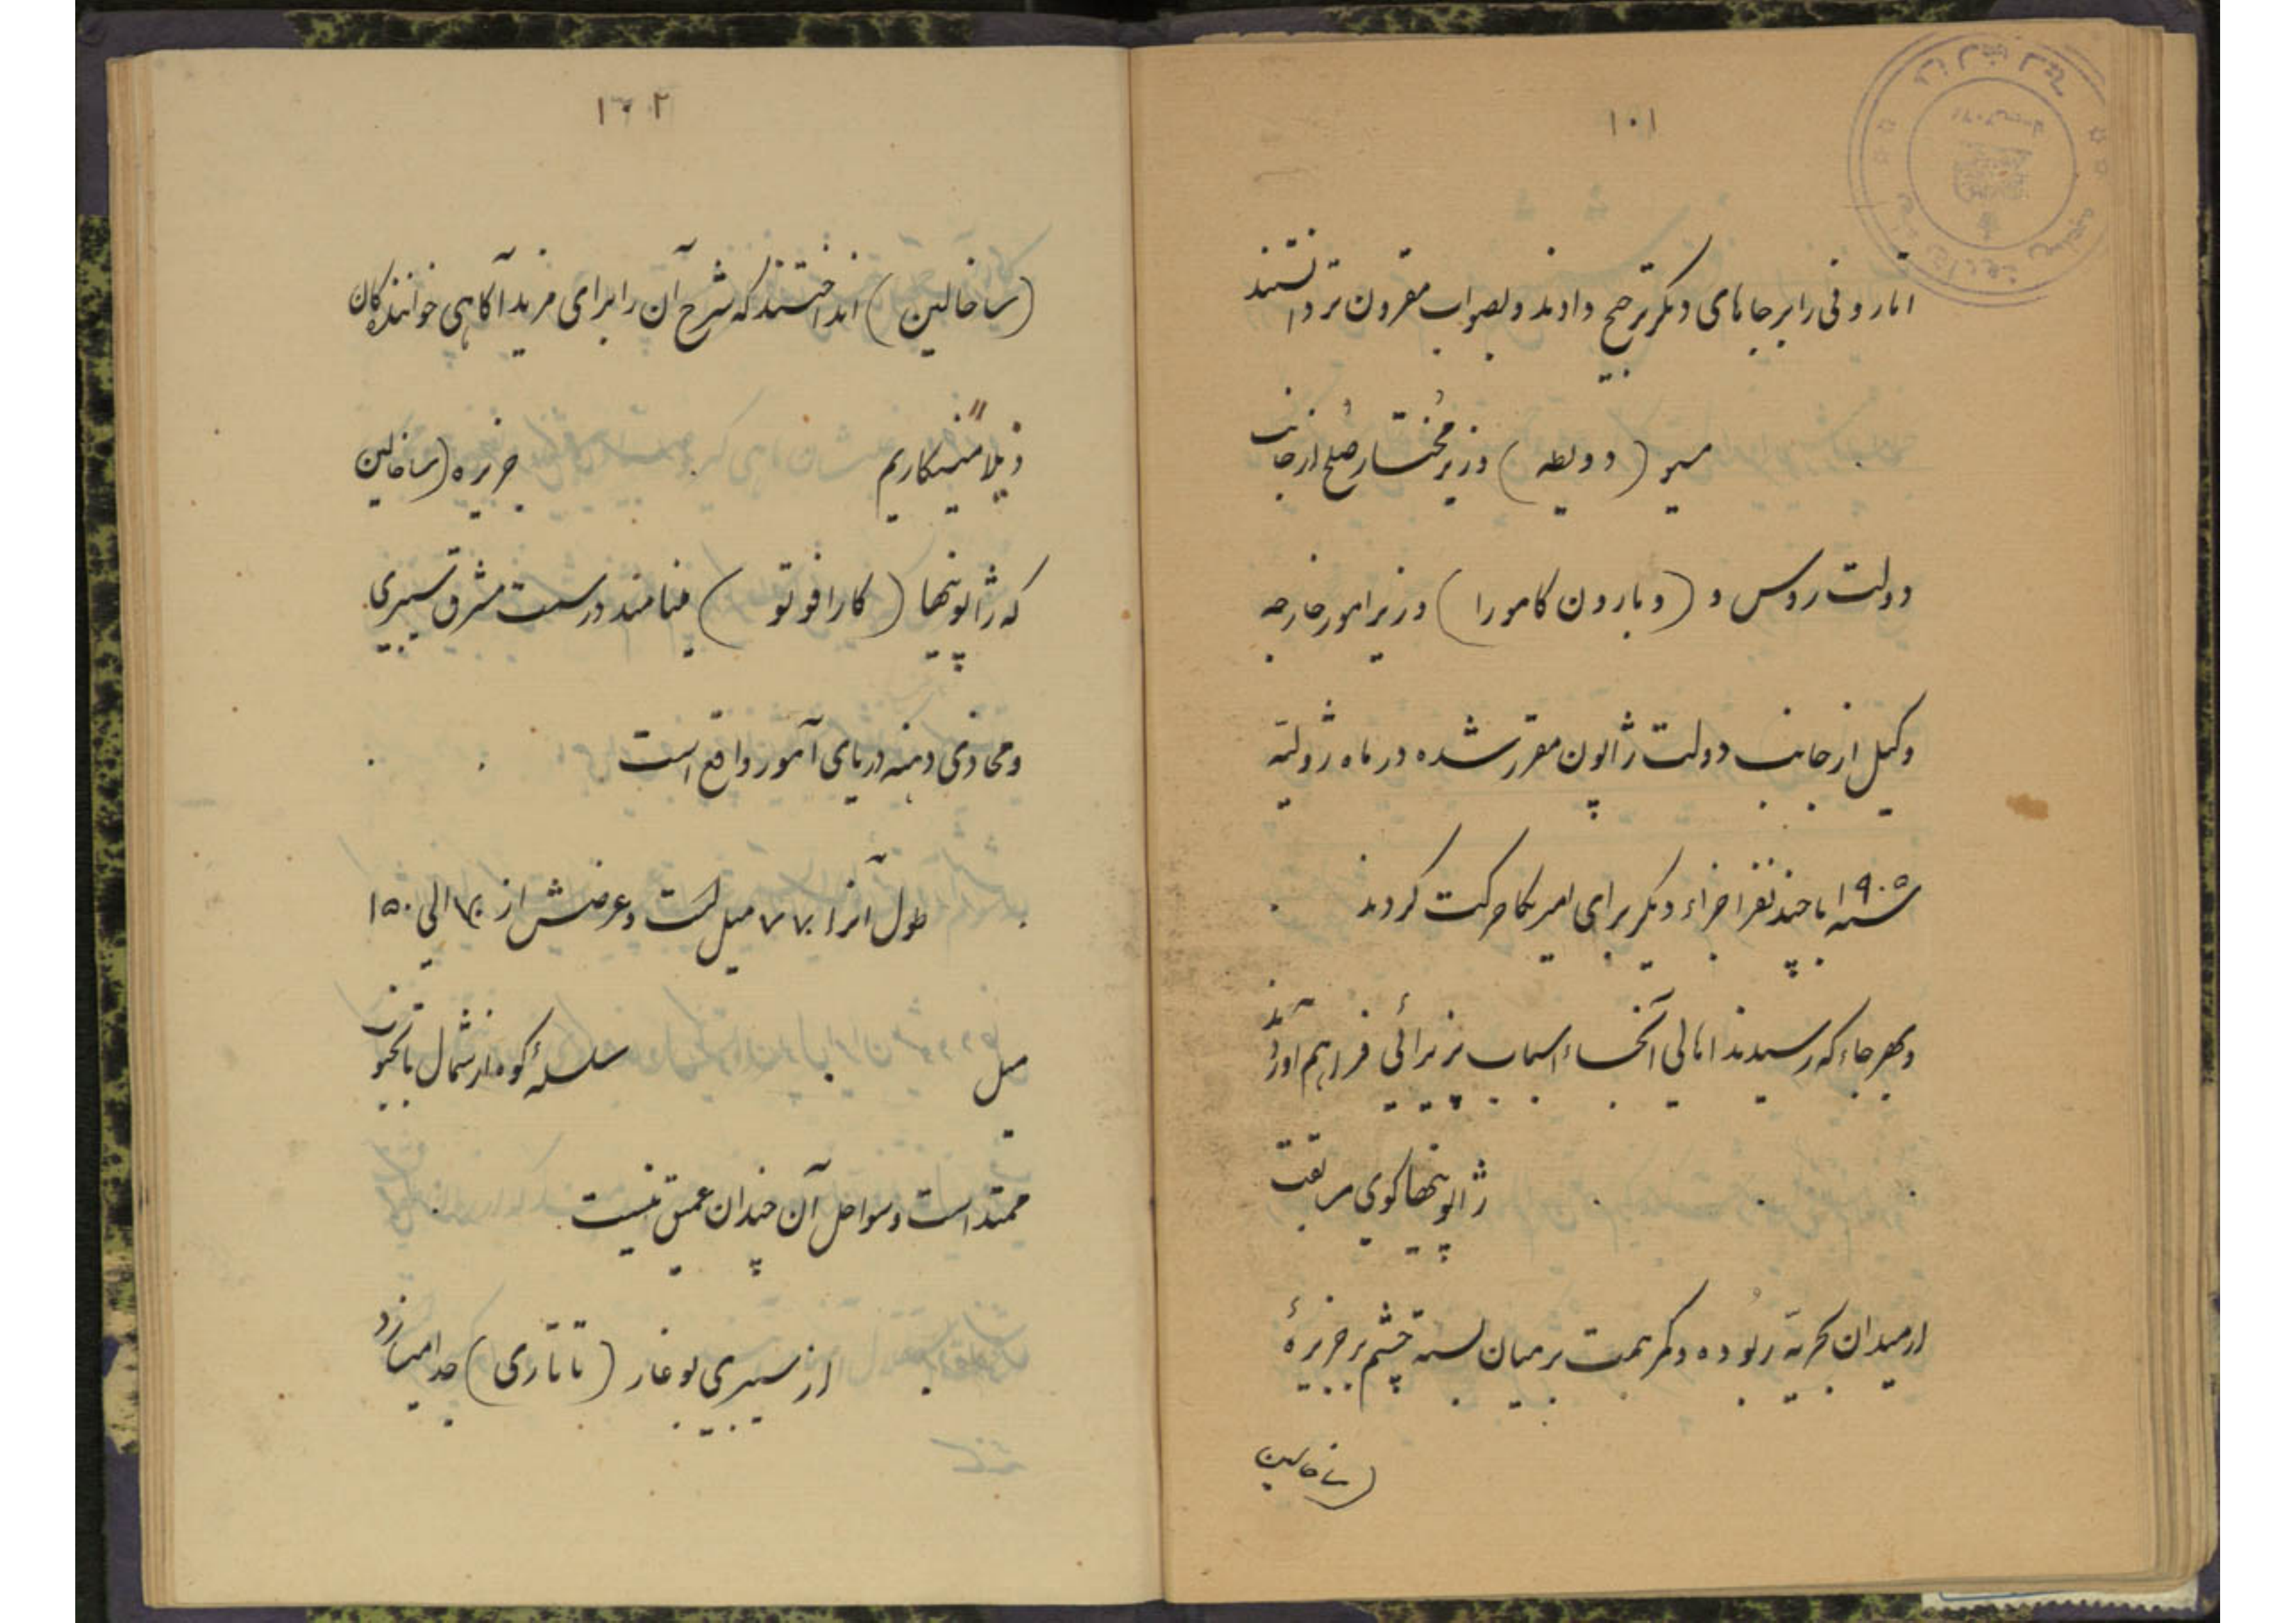 ۱۰۱
اتازونی را بر جاهای دیگر ترجیح دادند و بصواب مقرون تر دانستند
مسیو (دویطه) وزیر مختار صلح از جانب
دولت روس و (و بارون کامورا) وزیر امور خارجه
وکیل از جانب دولت ژاپون مقرر شده در ماه ژولیه
سنه ۱۹۰۵ با چند نفر اجزاء دیگر برای امیریکا حرکت کردند
و بهر جاء که رسیدند اهالی آنجا اسباب پذیرائی فراهم آوردند
ژاپونیها گوی سبقت
از میدان بحریه ربوده و کمر همت بر میان بسته چشم بر جزیرهٔ
(ساخالین
۱۰۲
(ساخالین) انداختند که شرح آن را برای مزید آکاهی خوانندکان
ذیلاً مینکاریم جزیره (ساخالین
که ژاپونیها (کارافوتو) مینامند در سمت مشرق سیبیری
و محاذی دهنه دریای آمور واقع است
طول آنرا ۷۷۰ میل است و عرضش از الی ۱۵۰
میل سلسلهٔ کوه از شمال تا بجنوب
ممتد است و سواحل آن چندان عمیق نیست
از سیبیری بوغاز (تاتاری) جدا میسازد